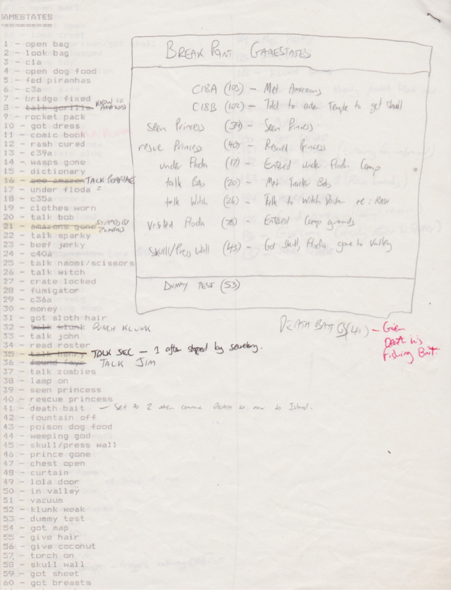 GAMESTATES
1 - open bag
2 - look bag
3 - cla
4 - open dog food
5 - fed piranhas
6 - c3a
7 - bridge fixed
8 - talk gorilla
9 - rocket pack
10 - got dress
11 - comic book
12 - rash cured
13 - c39a
14 - wasps gone
15 - dictionary
16 - see amazon TALK
17 - under floda
18 - c35a
19 - clothes worn
20 - talk bob
21 - amazons gone
22 - talk sparky
23 - beef jerky
24 - c40a
25 - talk naomi/scissors
26 - talk witch
27 - crate locked
28 - fumigator
29 - c36a
30 - money
31 - got sloth hair
32 - talk klunk PUNCH KLUNK
33 - talk john
34 - read roster
35 - talk TALK SEC - 1 after stopped by secretary.
36 - found faye TALK JIM
37 - talk zombies
38 - lamp on
39 - seen princess
40 - rescue princess
41 - death bait - Set to 2
42 - fountain off
43 - poison dog food
44 - weeping god
45 - skull/press wall
46 - prince gone
47 - chest open
48 - curtain
49 - lola door
50 - in valley
51 - vacuum
52 - klunk weak
53 - dummy test
54 - got map
55 - give hair
56 - give coconut
57 - torch on
58 - skull wall
59 - got sheet
60 - got breasts
BREAK POINT GAMESTATES
C18A (103) - Met Amazons
C18B (104) - Told to enter Temple to get Skull
Seen Princess (39) - Seen Princess
rescue Princess (40) - Rescued Princess
under Floda (17) - Entered under Floda Camp
talk Bob (20) - Met Bob
talk Witch (26) - Talk to Witch Doctor re:
Visited Floda (38) - Entered Camp grounds
Skull/Press Wall (45) - Got Skull, Floda gone to Valley
DUMMY TEST (53)
DEATH BAIT (41) - Give Death his Fishing Bait.